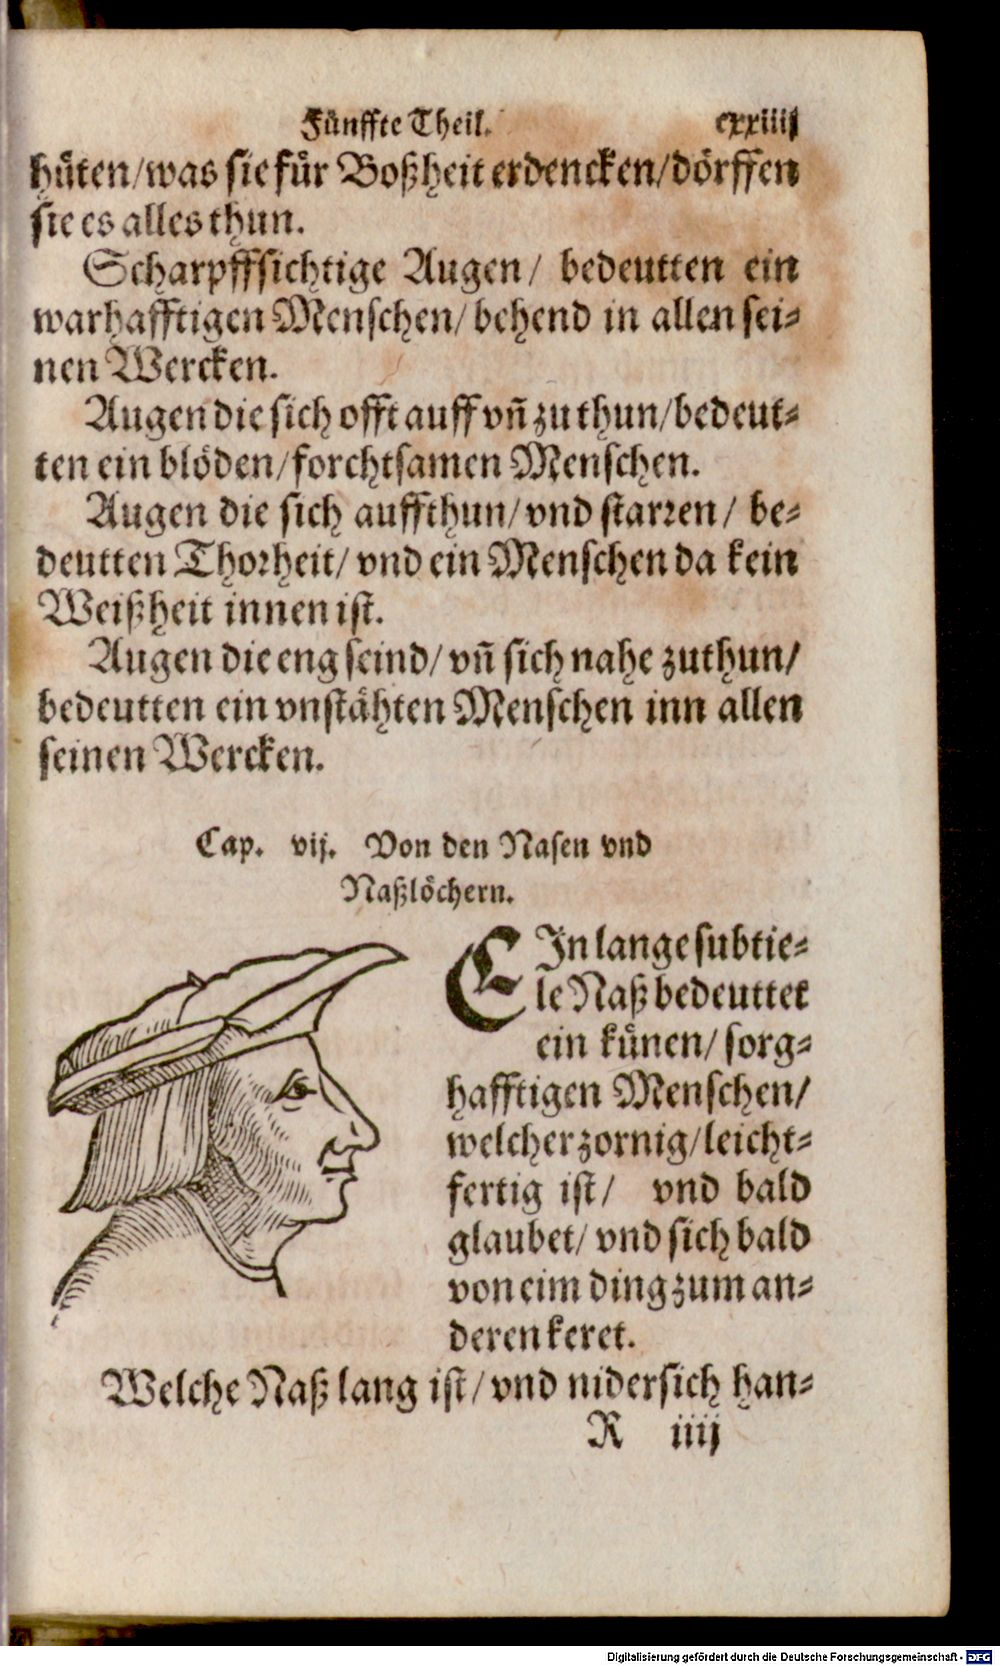 Fünffte Theil. cxxiiij
hüten/was sie für Boßheit erdencken/dörffen
sie es alles thun.
Scharpffsichtige Augen/ bedeutten ein
warhafftigen Menschen/behend in allen sei⸗
nen Wercken.
Augen die sich offt auff vñ zu thun/bedeut⸗
ten ein blöden/forchtsamen Menschen.
Augen die sich auffthun/vnd starꝛen/ be⸗
deutten Thoꝛheit/ vnd ein Menschen da kein
Weißheit innen ist.
Augen die eng seind/ vñ sich nahe zuthun/
bedeutten ein vnstähten Menschen inn allen
seinen Wercken.
Cap. vij. Von den Nasen vnd
Naßlöchern.
EIn lange subtie⸗
le Naß bedeuttet
ein künen/ sorg⸗
hafftigen Menschen/
welcher zornig/leicht⸗
fertig ist/ vnd bald
glaubet/ vnd sich bald
von eim ding zum an⸗
deren keret.
Welche Naß lang ist/vnd nidersich han⸗
R iiij
Digitalisierung gefördert durch die Deutsche Forschungsgemeinschaft - DFG